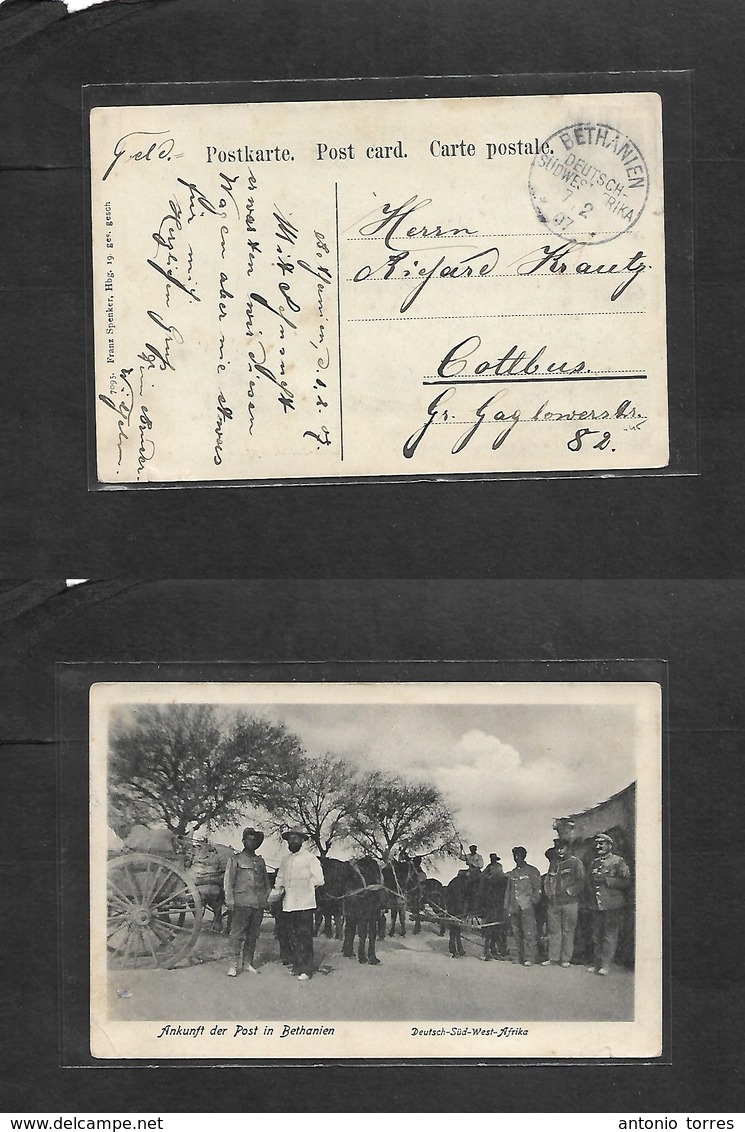 Feld=
Postkarte. Post card. Carte postale.
BETHANIEN
DEUTSCH-
SÜDWESTAFRIKA
7 2
07
Herrn
Richard Krautz
Cottbus.
Gr. Gaglowerstr.
82.
Bethanien, d. 6.2.07.
Mit Sehnsucht
erwarten wir diesen
Wagen aber nie etwas
für mich.
Herzlichen Gruß
Bruder
Wilhelm.
7095. Franz Spenker, Hbg. 19. ges. gesch
Ankunft der Post in Bethanien
Deutsch-Süd-West-Afrika
antonio torres